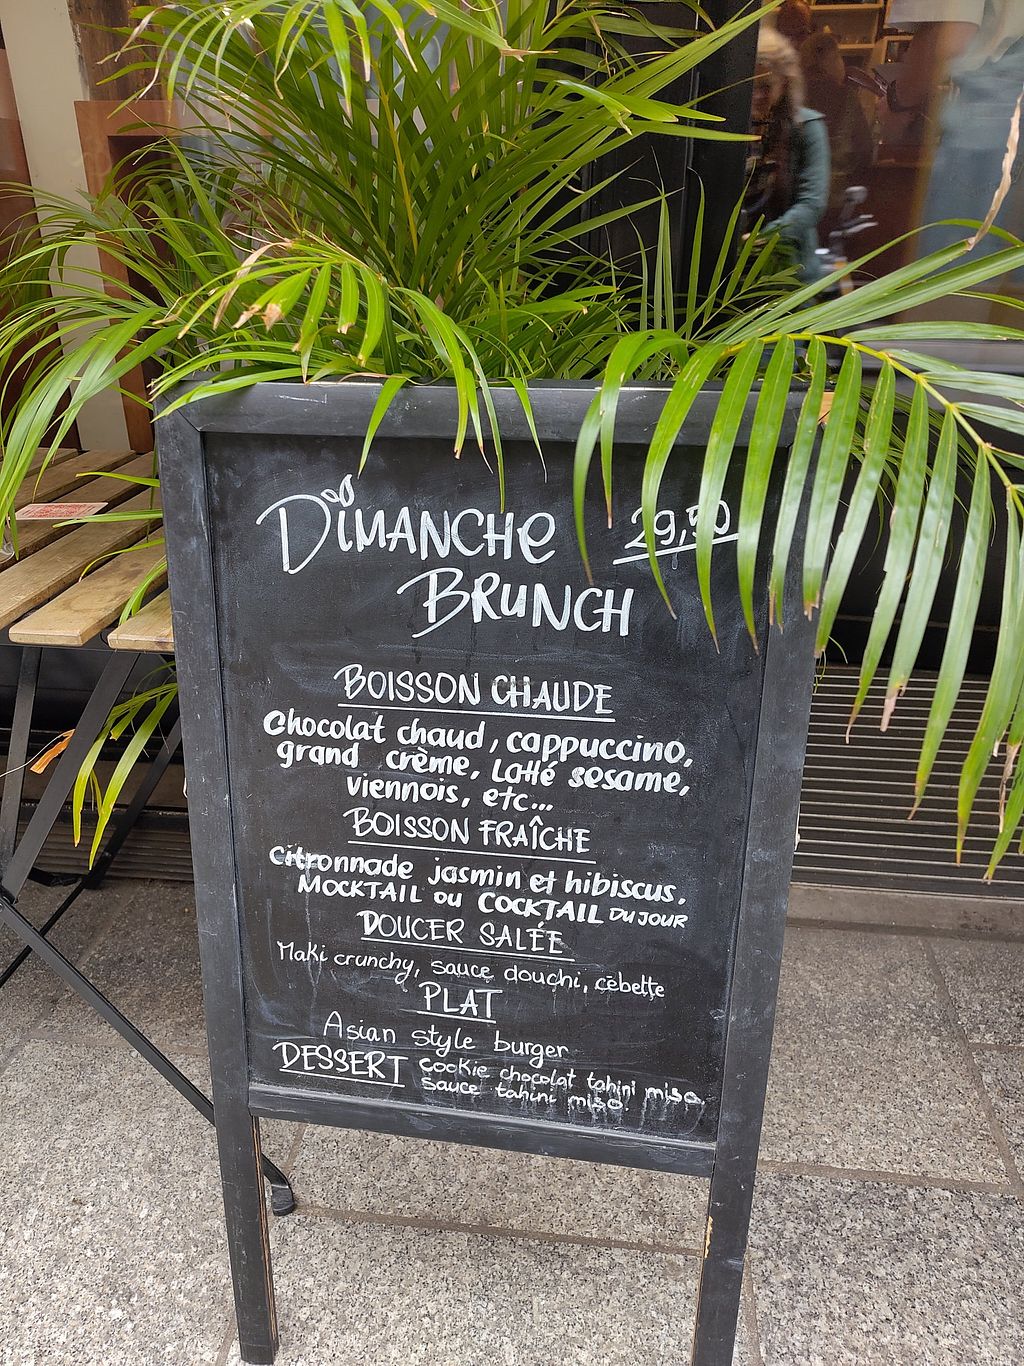 DIMANCHE 29,50
BRUNCH
BOISSON CHAUDE
Chocolat chaud, cappuccino,
grand crème, Latté sesame,
viennois, etc...
BOISSON FRAÎCHE
citronnade jasmin et hibiscus,
MOCKTAIL ou COCKTAIL DU JOUR
DOUCER SALÉE
Maki crunchy, sauce douchi, cébette
PLAT
Asian style burger
DESSERT cookie chocolat tahini miso.
sauce tahini miso.